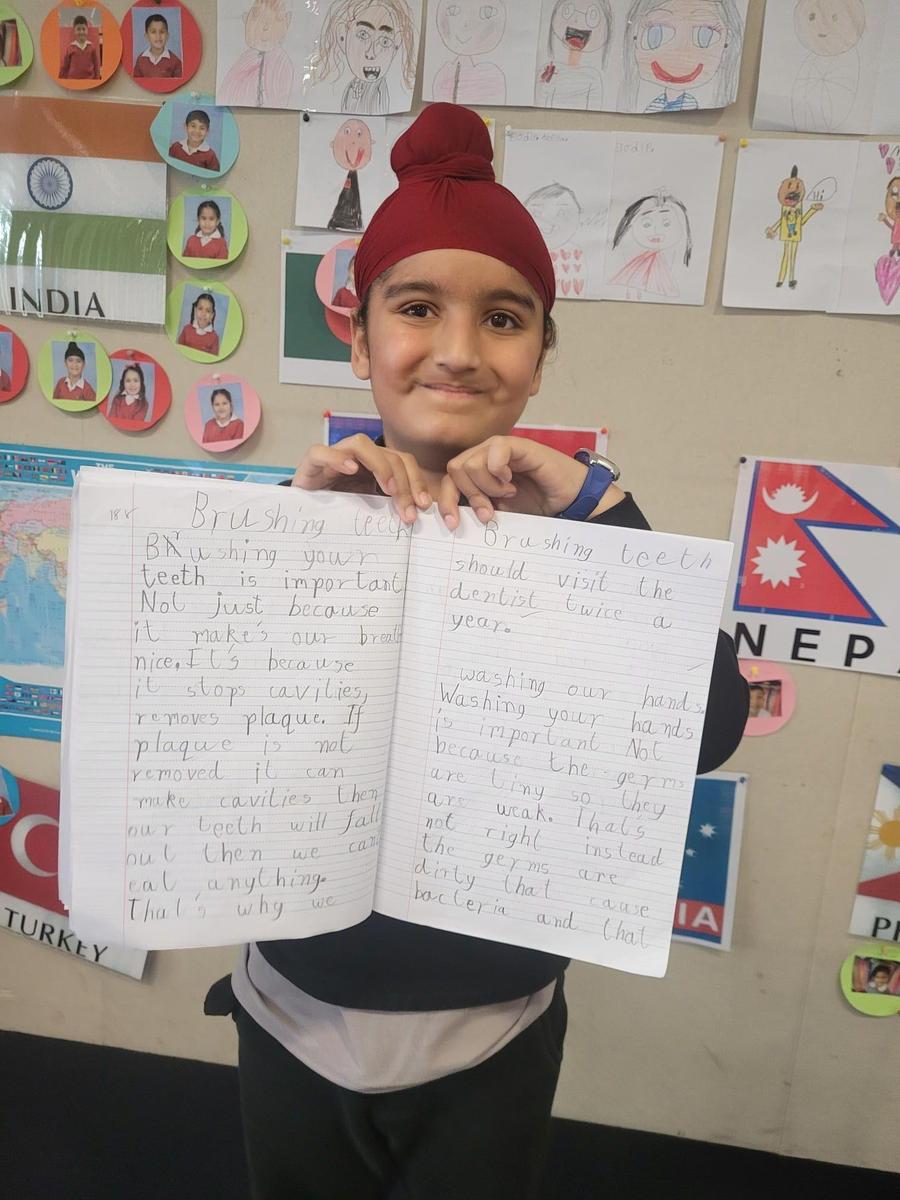 INDIA
Hi
18.8
Brushing teeth
Brushing your
teeth is important
Not just because
it make's our breath
nice. It's because
it stops cavities,
removes plaque. If
plaque is not
removed it can
make cavities then
our teeth will fall
out then we cant
eat anything.
That's why we
Brushing teeth
should visit the
dentist twice a
year.
washing our hands.
Washing your hands
is important Not
because the germs
are tiny so they
are weak. That's
not right instead
the germs are
dirty that cause
bacteria and that
NEPA
TURKEY
IA